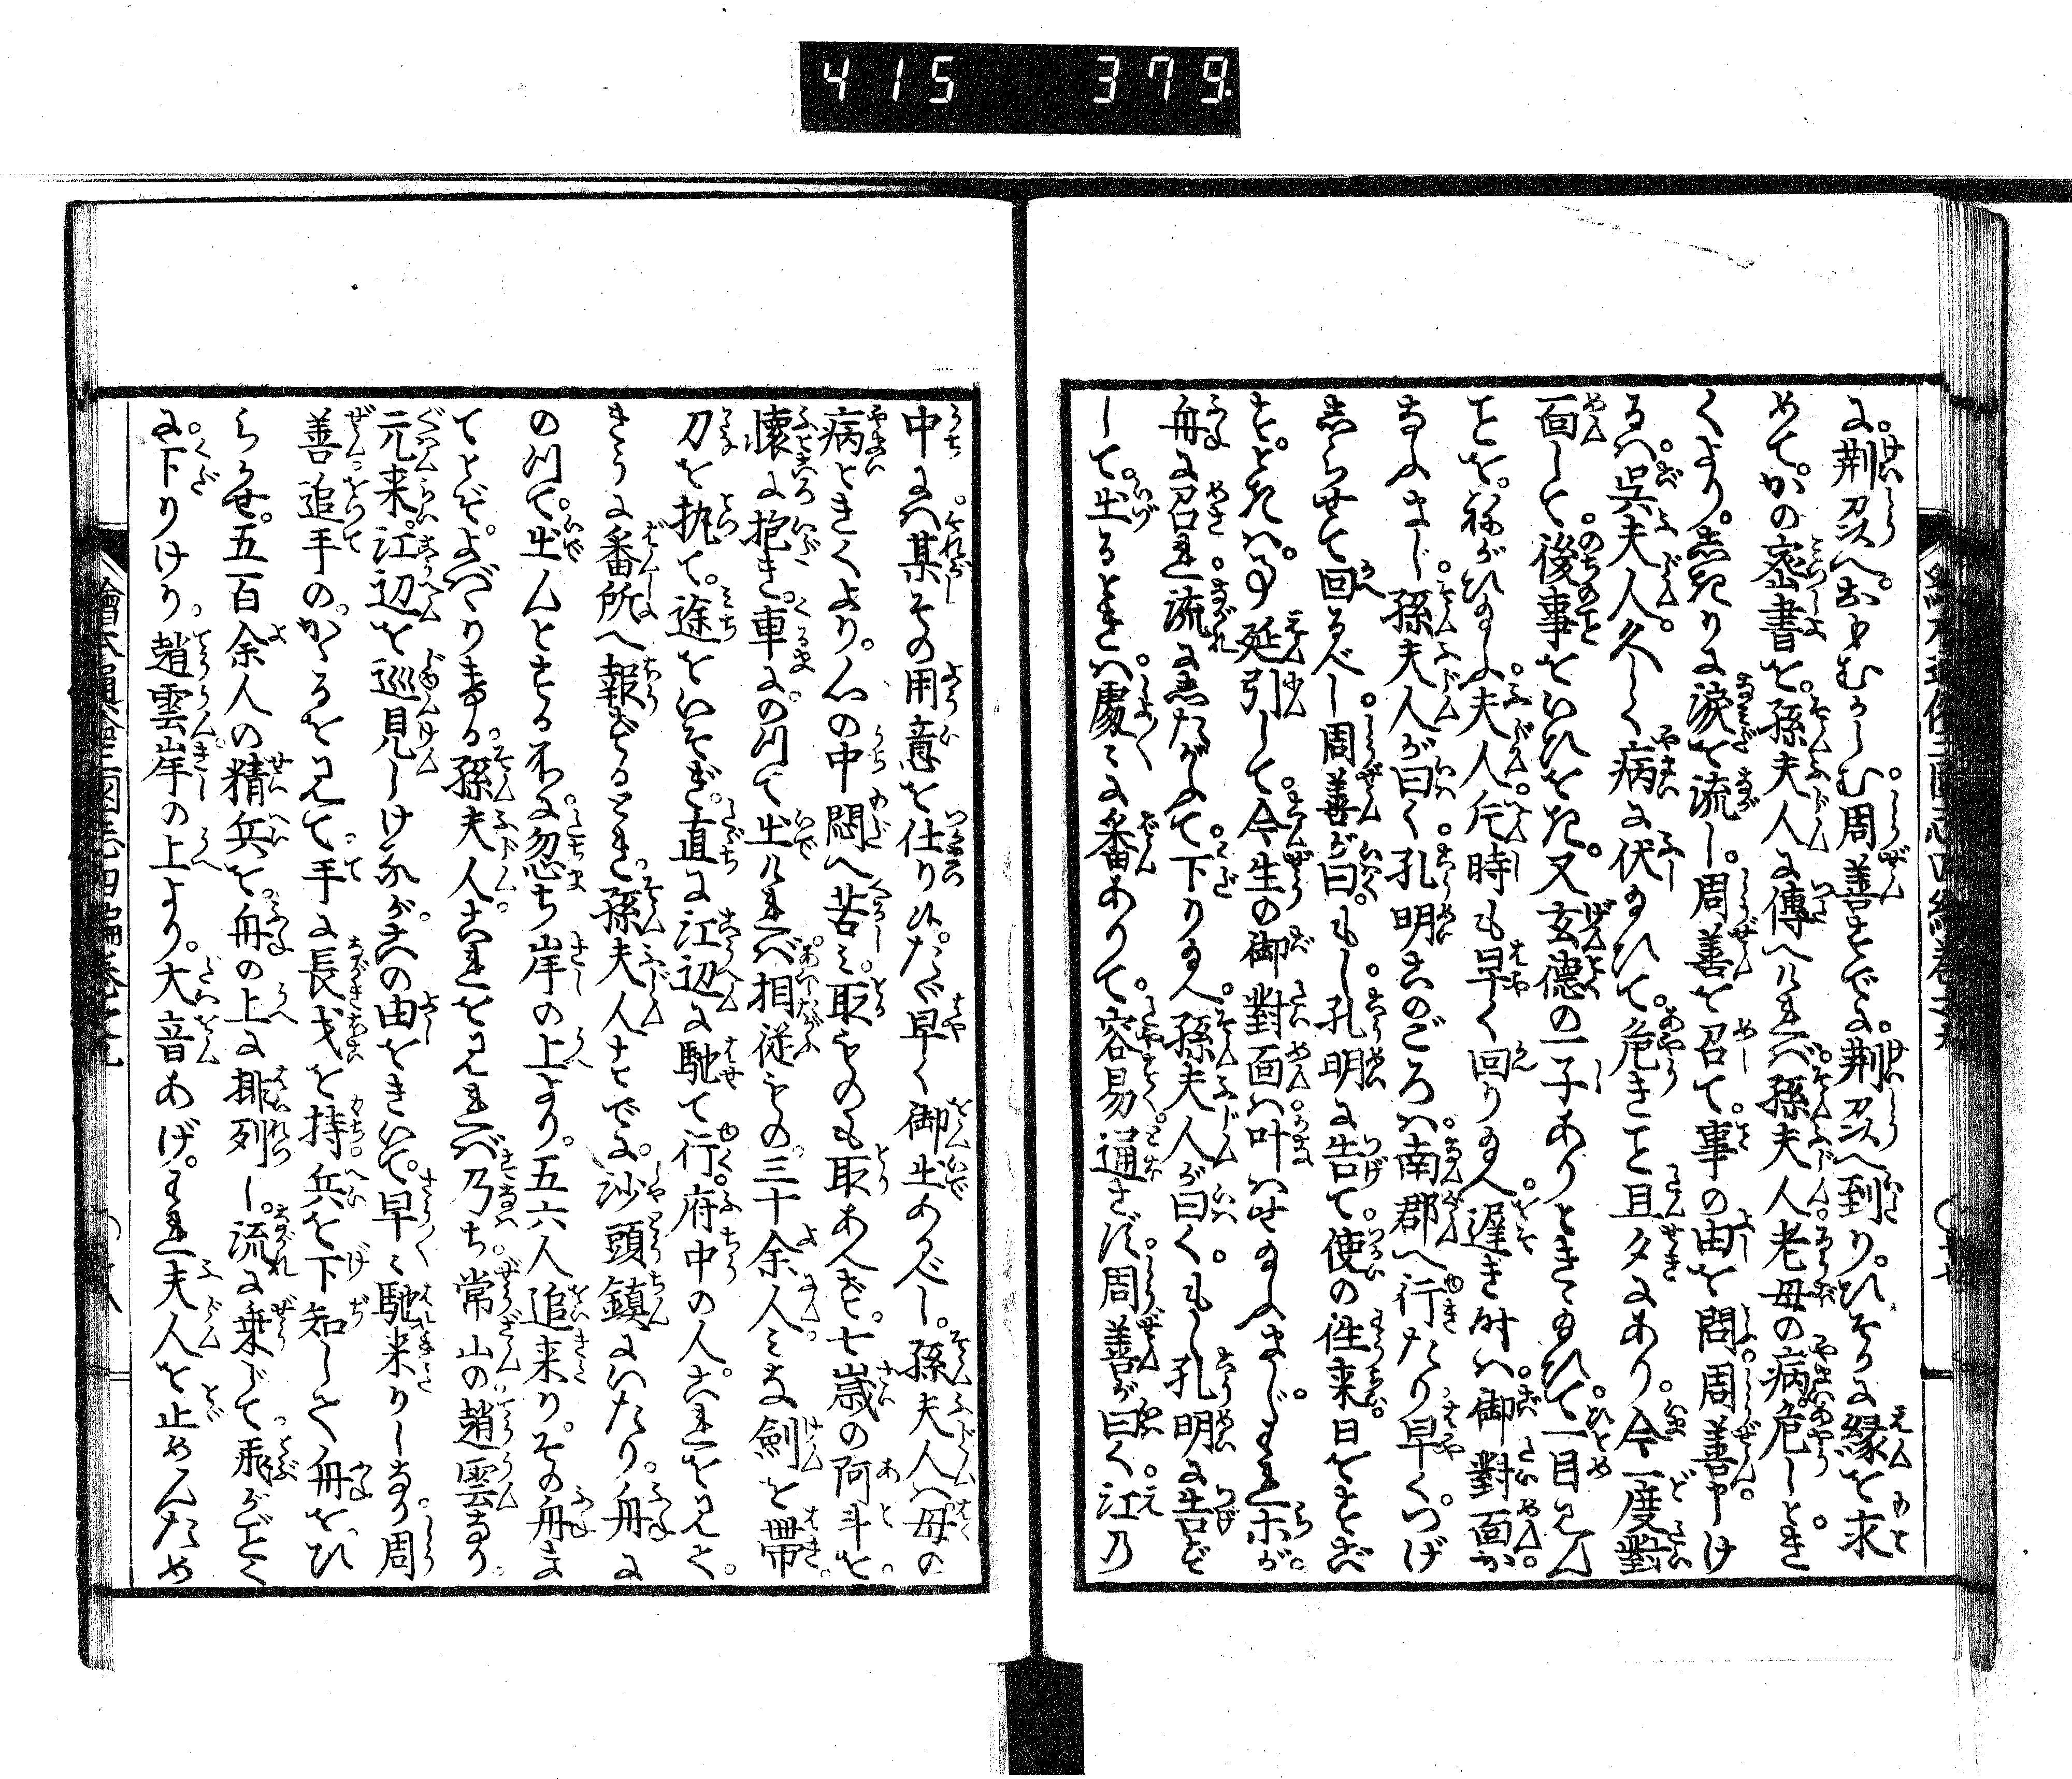 415 379
に。荆州へおもむかしむ周善すでに。荆州へ到り。ひそかに縁を求
めて。かの密書を。孫夫人に傳へけれバ孫夫人老母の病。危しとき
くより。しきりに涙を流し。周善を召て。事の由を問。周善申け
るハ。呉夫人。久しく病に伏給ひて。危きこと旦夕にあり。今一度對
面して後事をいひをき。又玄德の一子ありときゝ給ひて。一目見ん
ことを。祢がひ給ふ夫人。片時も早く回り給へ。遅き时ハ。御對面か
なふまじ孫夫人が曰く。孔明このごろハ。南郡へ行たり早く。つげ
しらせて回るべし周善が曰。もし孔明に告て。使の徃来。日をすご
さ。ときハ。事延引して。今生の御對面ハ叶ハせ給ふまじ。これホが。
舟に召れ流にしたがふて下り給へ。孫夫人が曰く。もし孔明に告ず
して。出るときハ處〻に番ありて。容易通さじ周善が曰く。江乃
中にハ某その用意を仕り候。たゞ早く御出あるべし。孫夫人ハ母の
病ときくより。心の中悶へ苦ミ。取ものも取あへず。七歳の阿斗を
懐に抱き。車にのりて出けれバ相從もの。三十余人ミな剣を帶
刀を执て。途をいそぎ。直に江辺に馳て行。府中の人。これを見て。
きうに番所へ報ずるとき。孫夫人すでに。沙頭鎮にいたり。舟に
のりて。出んとする所に忽ち岸の上より。五六人追来り。その舟ま
てとぞ。よバゝりける。孫夫人。これを見れバ乃ち常山の趙雲なり
元来。江辺を巡見しけるが。この由をきいて。早〻馳来りしなり周
善追手の。かゝるを見て手に長戈を持兵を下知して舟をひ
らかせ。五百余人の精兵を。舟の上に排列し。流に乗じて飛がごとく
に下りけり。趙雲岸の上より。大音あげ。これ夫人を止めんため